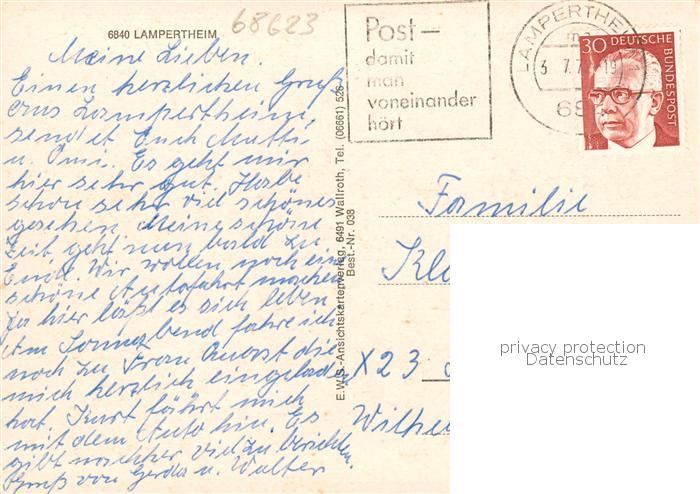 6840 LAMPERTHEIM
68623
Meine Lieben.
Einen herzlichen Gruß
aus Lampertheim,
sendet Euch Mutti
u. Omi. Es geht mir
hier sehr gut. Habe
schon sehr viel schönes
gesehen. Meine schöne
Zeit geht nun bald zu
Ende. Wir wollen noch eine
schöne Autofahrt machen
ja hier läßt es sich leben
Am Sonnabend fahre ich
noch zu Frau die
mich herzlich eingeladen
hat. Kurt fährt mich
mit dem Auto hin. Es
gibt nachher viel zu berichten.
Gruß von Gerda u. Walter
E.W.S.-Ansichtskartenverlag, 6491 Wallroth, Tel. (06661) 526
Best.-Nr. 038
Post-
damit
man
voneinander
hört
LAMPERTHEIM
3. 7.7 19
68
30 DEUTSCHE
BUNDESPOST
Familie
Kl
X23
Wilhe
privacy protection
Datenschutz